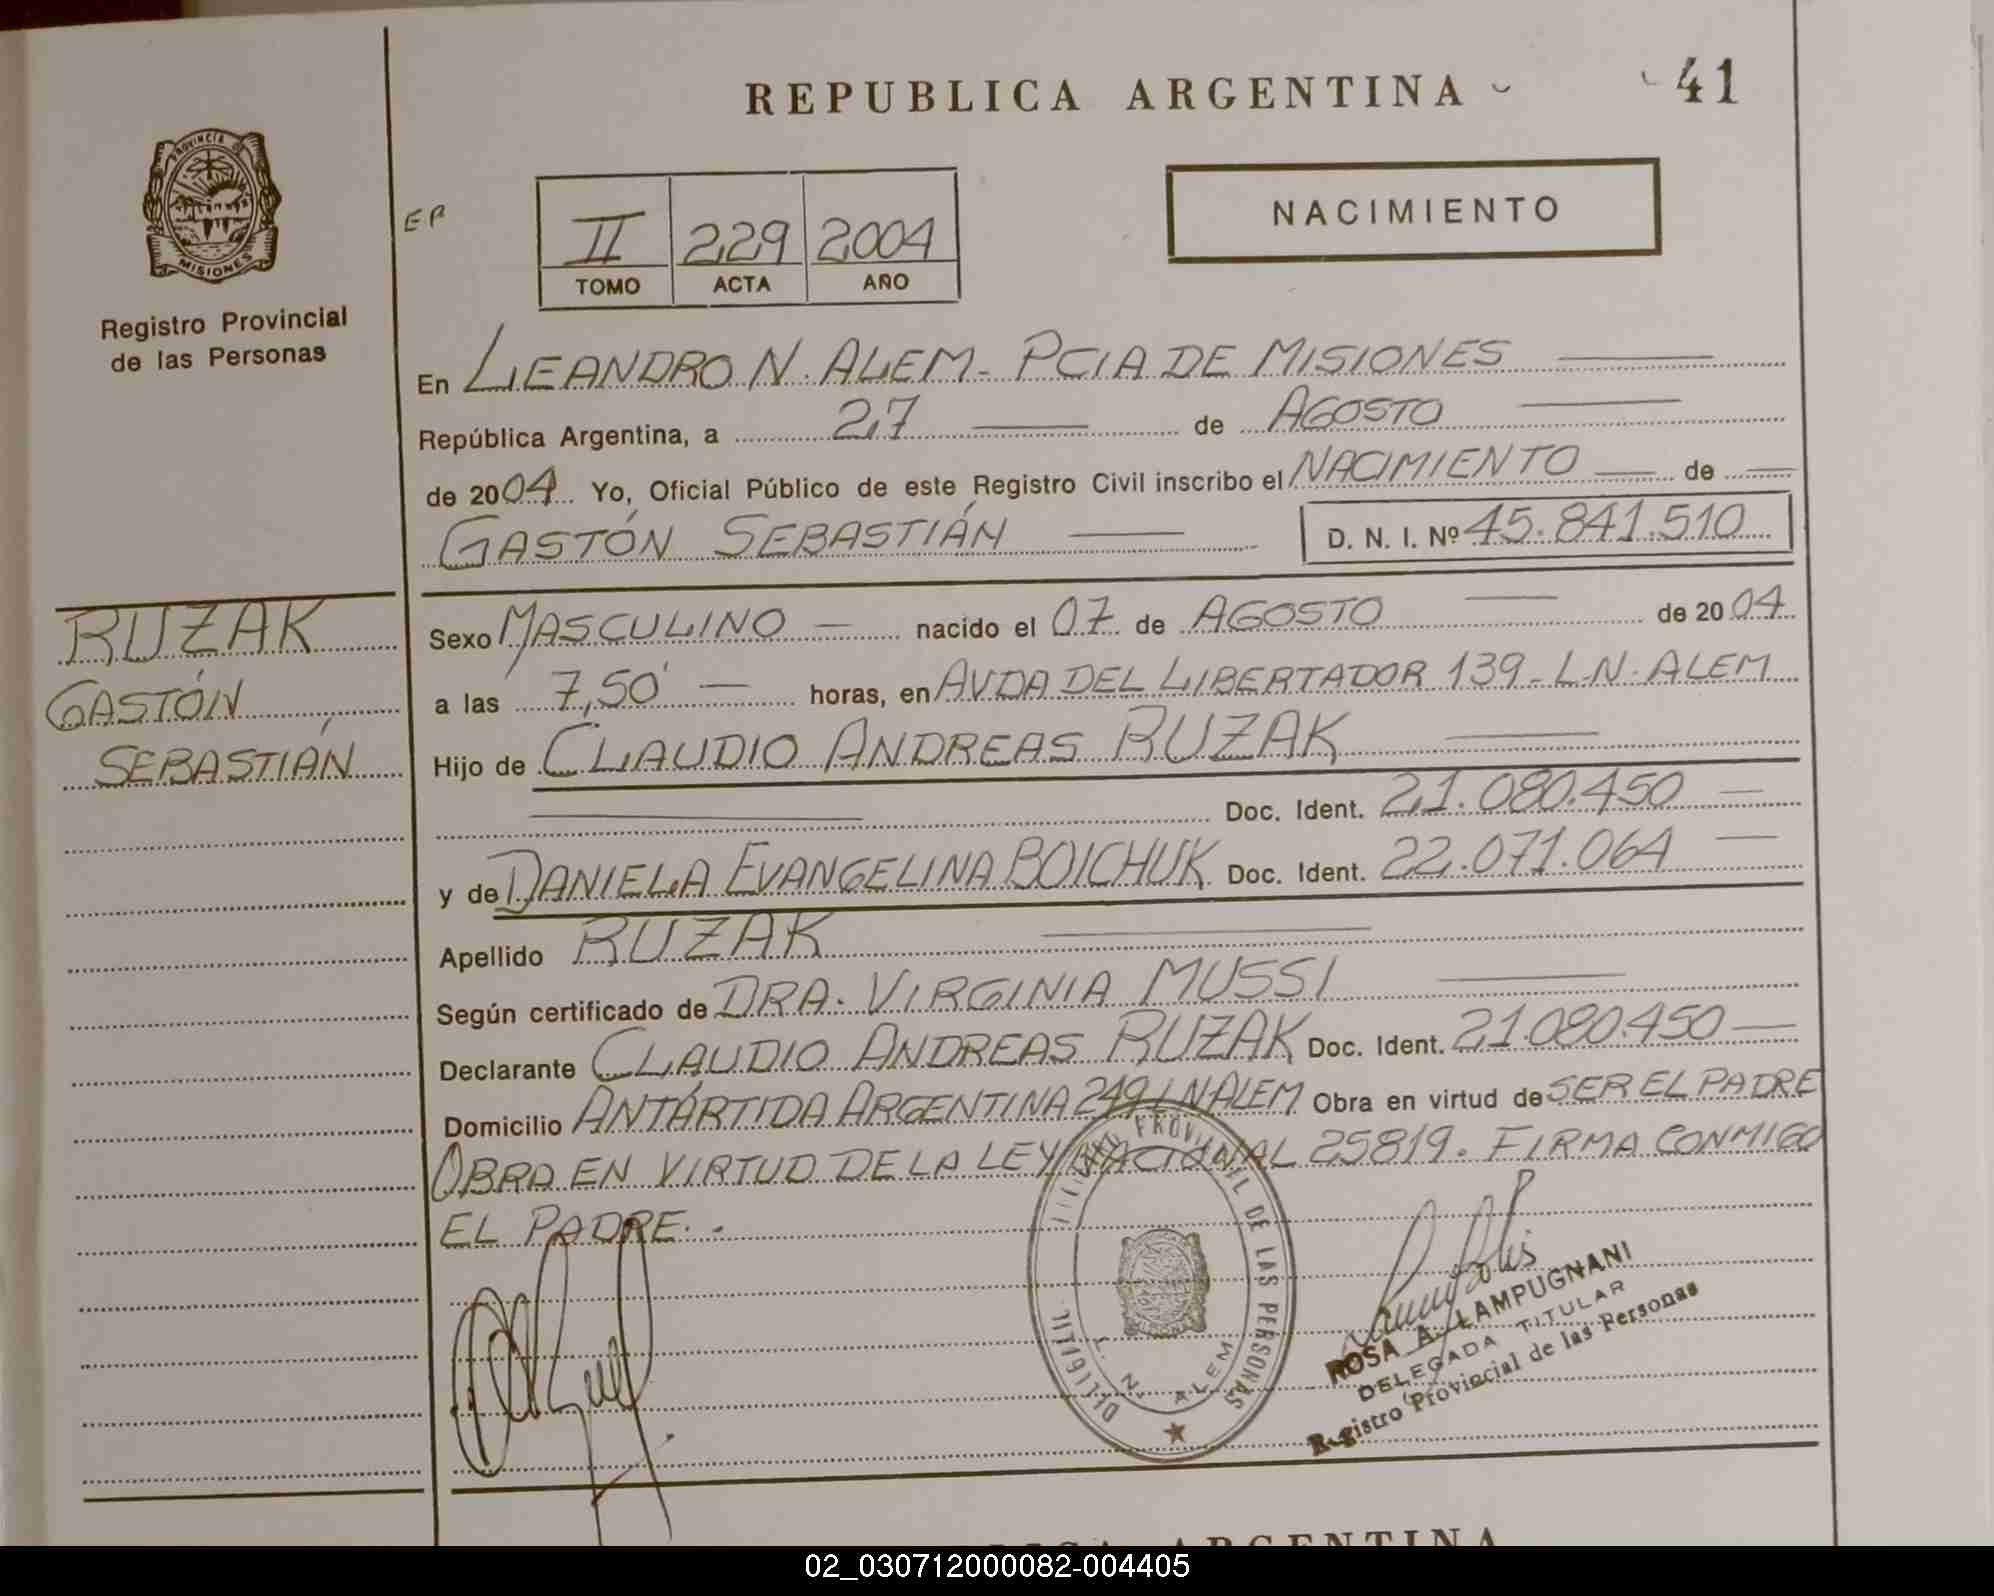 REPUBLICA ARGENTINA
41
PROVINCIA DE
MISIONES
Registro Provincial
de las Personas
EP
II 229 2004
TOMO ACTA AÑO
NACIMIENTO
En LEANDRO N. ALEM - PCIA DE MISIONES
República Argentina, a 27 de AGOSTO
de 2004 Yo, Oficial Público de este Registro Civil inscribo el NACIMIENTO de
GASTÓN SEBASTIÁN D. N. I. Nº 45.841.510
RUZAK
GASTÓN
SEBASTIÁN
Sexo MASCULINO nacido el 07 de AGOSTO de 2004
a las 7,50' horas, en AVDA DEL LIBERTADOR 139 - L.N. ALEM
Hijo de CLAUDIO ANDREAS RUZAK
Doc. Ident. 21.080.450
y de DANIELA EVANGELINA BOICHUK Doc. Ident. 22.071.064
Apellido RUZAK
Según certificado de DRA. VIRGINIA MUSSI
Declarante CLAUDIO ANDREAS RUZAK Doc. Ident. 21.080.450
Domicilio ANTÁRTIDA ARGENTINA 249 LN ALEM Obra en virtud de SER EL PADRE
OBRA EN VIRTUD DE LA LEY NACIONAL 25819. FIRMA CONMIGO
EL PADRE.
PROVINCIAL DE LAS PERSONAS
L. N. ALEM
ROSA A. LAMPUGNANI
DELEGADA TITULAR
Registro Provincial de las Personas
ARGENTINA
02_030712000082-004405